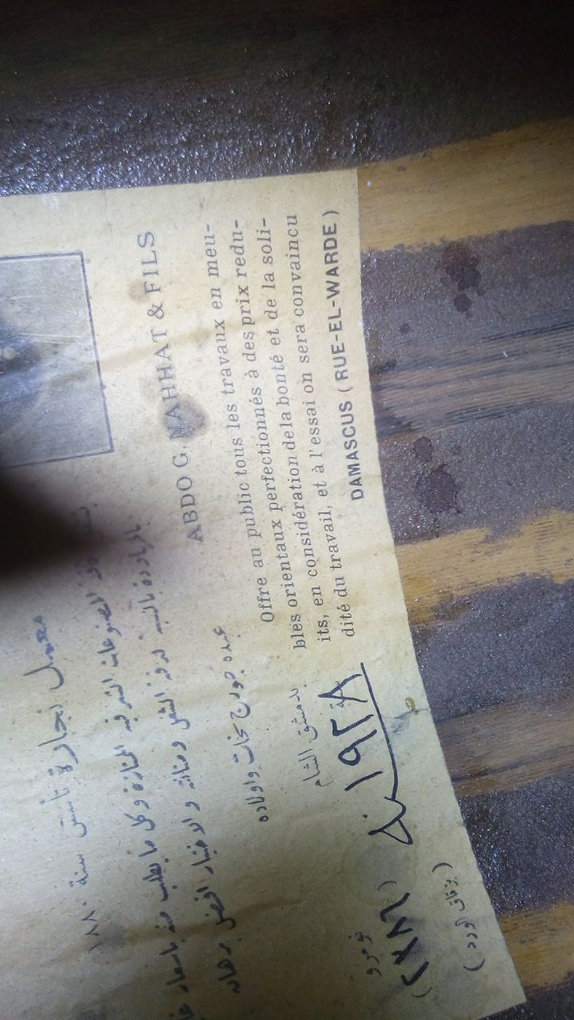 ABDO G. NAHHAT & FILS
Offre au public tous les travaux en meu-
bles orientaux perfectionnés à des prix redu-
its, en considération de la bonté et de la soli-
dité du travail, et à l'essai on sera convaincu
DAMASCUS (RUE-EL-WARDE)
معمل نجارة تأسس سنة ١٨٨٠
المصنوعات الشرقية الممتازة وكل ما يطلب منه باسعار
بالنسبة لدقة الشغل ومتانته والاختبار افضل برهان
عبده جورج نحات واولاده
بدمشق الشام
سنة ١٩٢٨
نومرو
(بزقاق الورد)